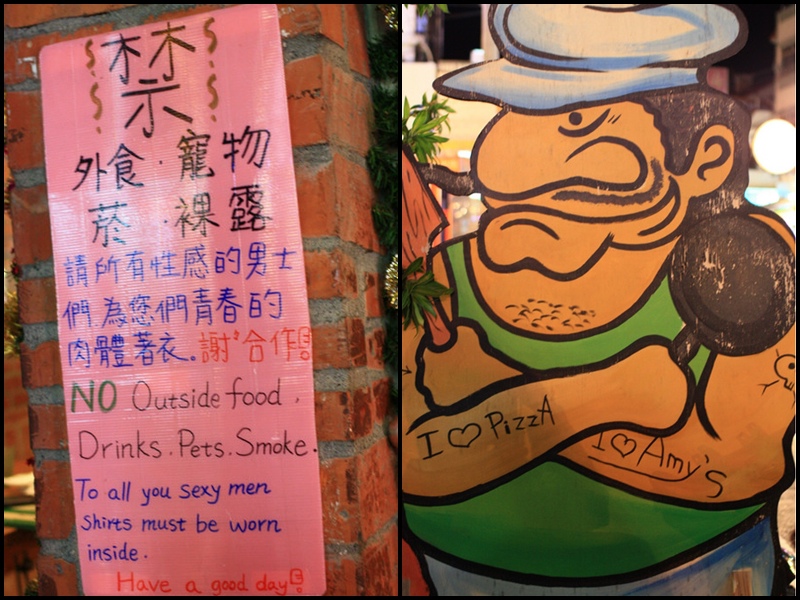 禁
外食.寵物
菸.裸露
請所有性感的男士
們為您們青春的
肉體著衣。謝謝合作!
NO Outside food.
Drinks.Pets.Smoke.
To all you sexy men
Shirts must be worn
inside.
Have a good day!
I ♡ PizzA
I ♡ Amy's